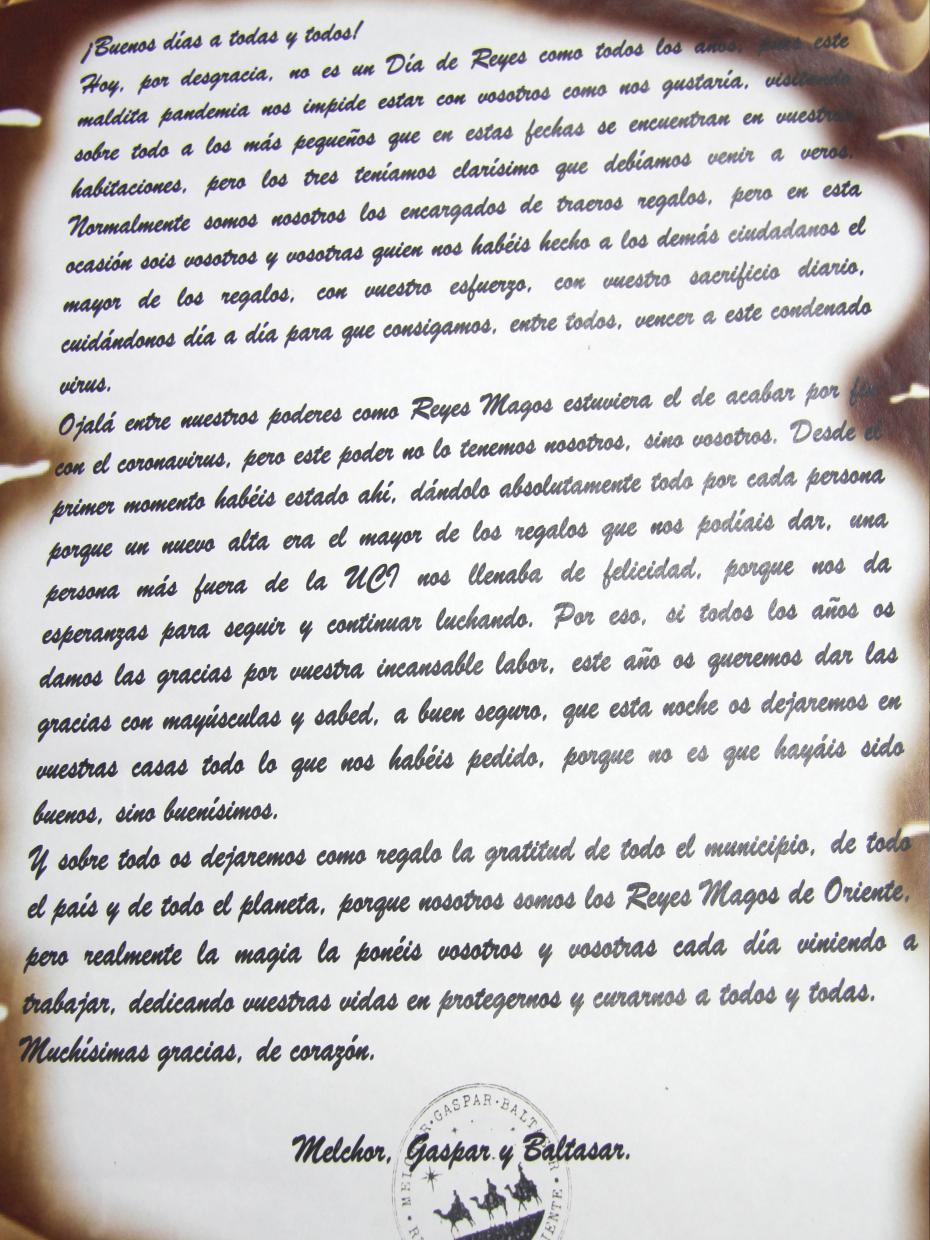 ¡Buenos días a todas y todos!
Hoy, por desgracia, no es un Día de Reyes como todos los años, pues este
maldita pandemia nos impide estar con vosotros como nos gustaría, visitando
sobre todo a los más pequeños que en estas fechas se encuentran en vuestras
habitaciones, pero los tres teníamos clarísimo que debíamos venir a veros.
Normalmente somos nosotros los encargados de traeros regalos, pero en esta
ocasión sois vosotros y vosotras quien nos habéis hecho a los demás ciudadanos el
mayor de los regalos, con vuestro esfuerzo, con vuestro sacrificio diario,
cuidándonos día a día para que consigamos, entre todos, vencer a este condenado
virus.
Ojalá entre nuestros poderes como Reyes Magos estuviera el de acabar por fin
con el coronavirus, pero este poder no lo tenemos nosotros, sino vosotros. Desde el
primer momento habéis estado ahí, dándolo absolutamente todo por cada persona
porque un nuevo alta era el mayor de los regalos que nos podíais dar, una
persona más fuera de la UCI nos llenaba de felicidad, porque nos da
esperanzas para seguir y continuar luchando. Por eso, si todos los años os
damos las gracias por vuestra incansable labor, este año os queremos dar las
gracias con mayúsculas y sabed, a buen seguro, que esta noche os dejaremos en
vuestras casas todo lo que nos habéis pedido, porque no es que hayáis sido
buenos, sino buenísimos.
Y sobre todo os dejaremos como regalo la gratitud de todo el municipio, de todo
el país y de todo el planeta, porque nosotros somos los Reyes Magos de Oriente,
pero realmente la magia la ponéis vosotros y vosotras cada día viniendo a
trabajar, dedicando vuestras vidas en protegernos y curarnos a todos y todas.
Muchísimas gracias, de corazón.
Melchor, Gaspar y Baltasar.
GASPAR